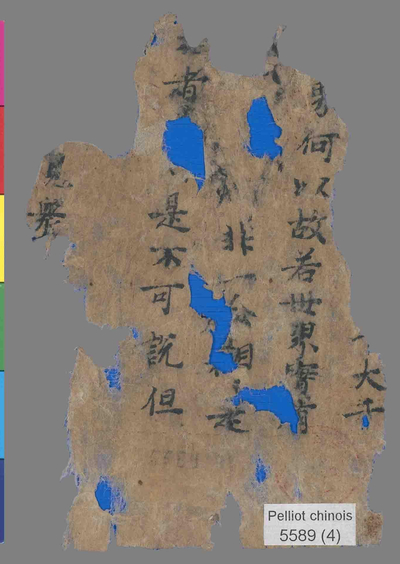 大千
界何以故若世界實有
非一合相是
者是不可說但
見眾
Pelliot chinois
5589 (4)